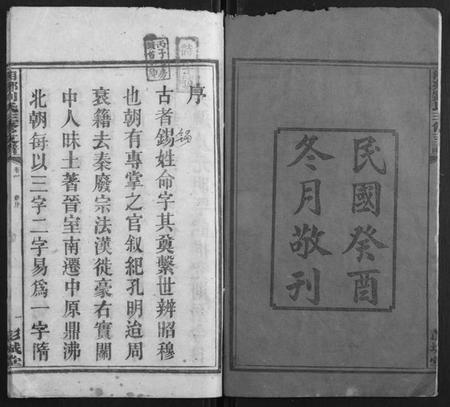 民國癸酉
冬月敬刊
序
古者錫姓命字其奠繫世辨昭穆
也朝有專掌之官叙紀孔明迨周
衰籍去秦廢宗法漢徙豪右實關
中人昧土著晉室南遷中原鼎沸
北朝每以三字二字易爲一字隋
彭城堂